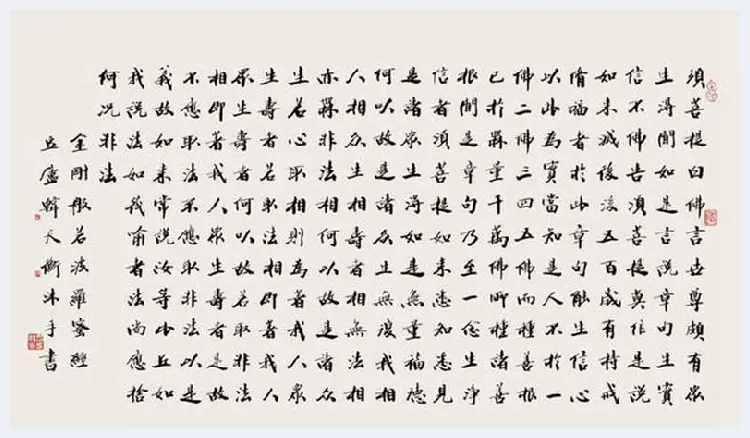 須菩提白佛言世尊頗有衆
生得聞如是言說章句生實
信不佛告須菩提莫作是說
如來滅後後五百歲有持戒
脩福者於此章句能生信心
以此為實當知是人不於一
佛二佛三四五佛而種善根
已於無量千萬佛所種諸善
根聞是章句乃至一念生淨
信者須菩提如來悉知悉見
是諸衆生得如是無量福德
何以故是諸衆生無復我相
人相衆生相壽者相無法相
亦無非法相何以故是諸衆
生若心取相則為著我人衆
生壽者若取法相即著我人
衆生壽者何以故若取非法
相即著我人衆生壽者是故
不應取法不應取非法以是
義故如來常說汝等比丘知
我說法如筏喻者法尚應捨
何況非法
金剛般若波羅蜜經
豆廬韓天衡沐手書